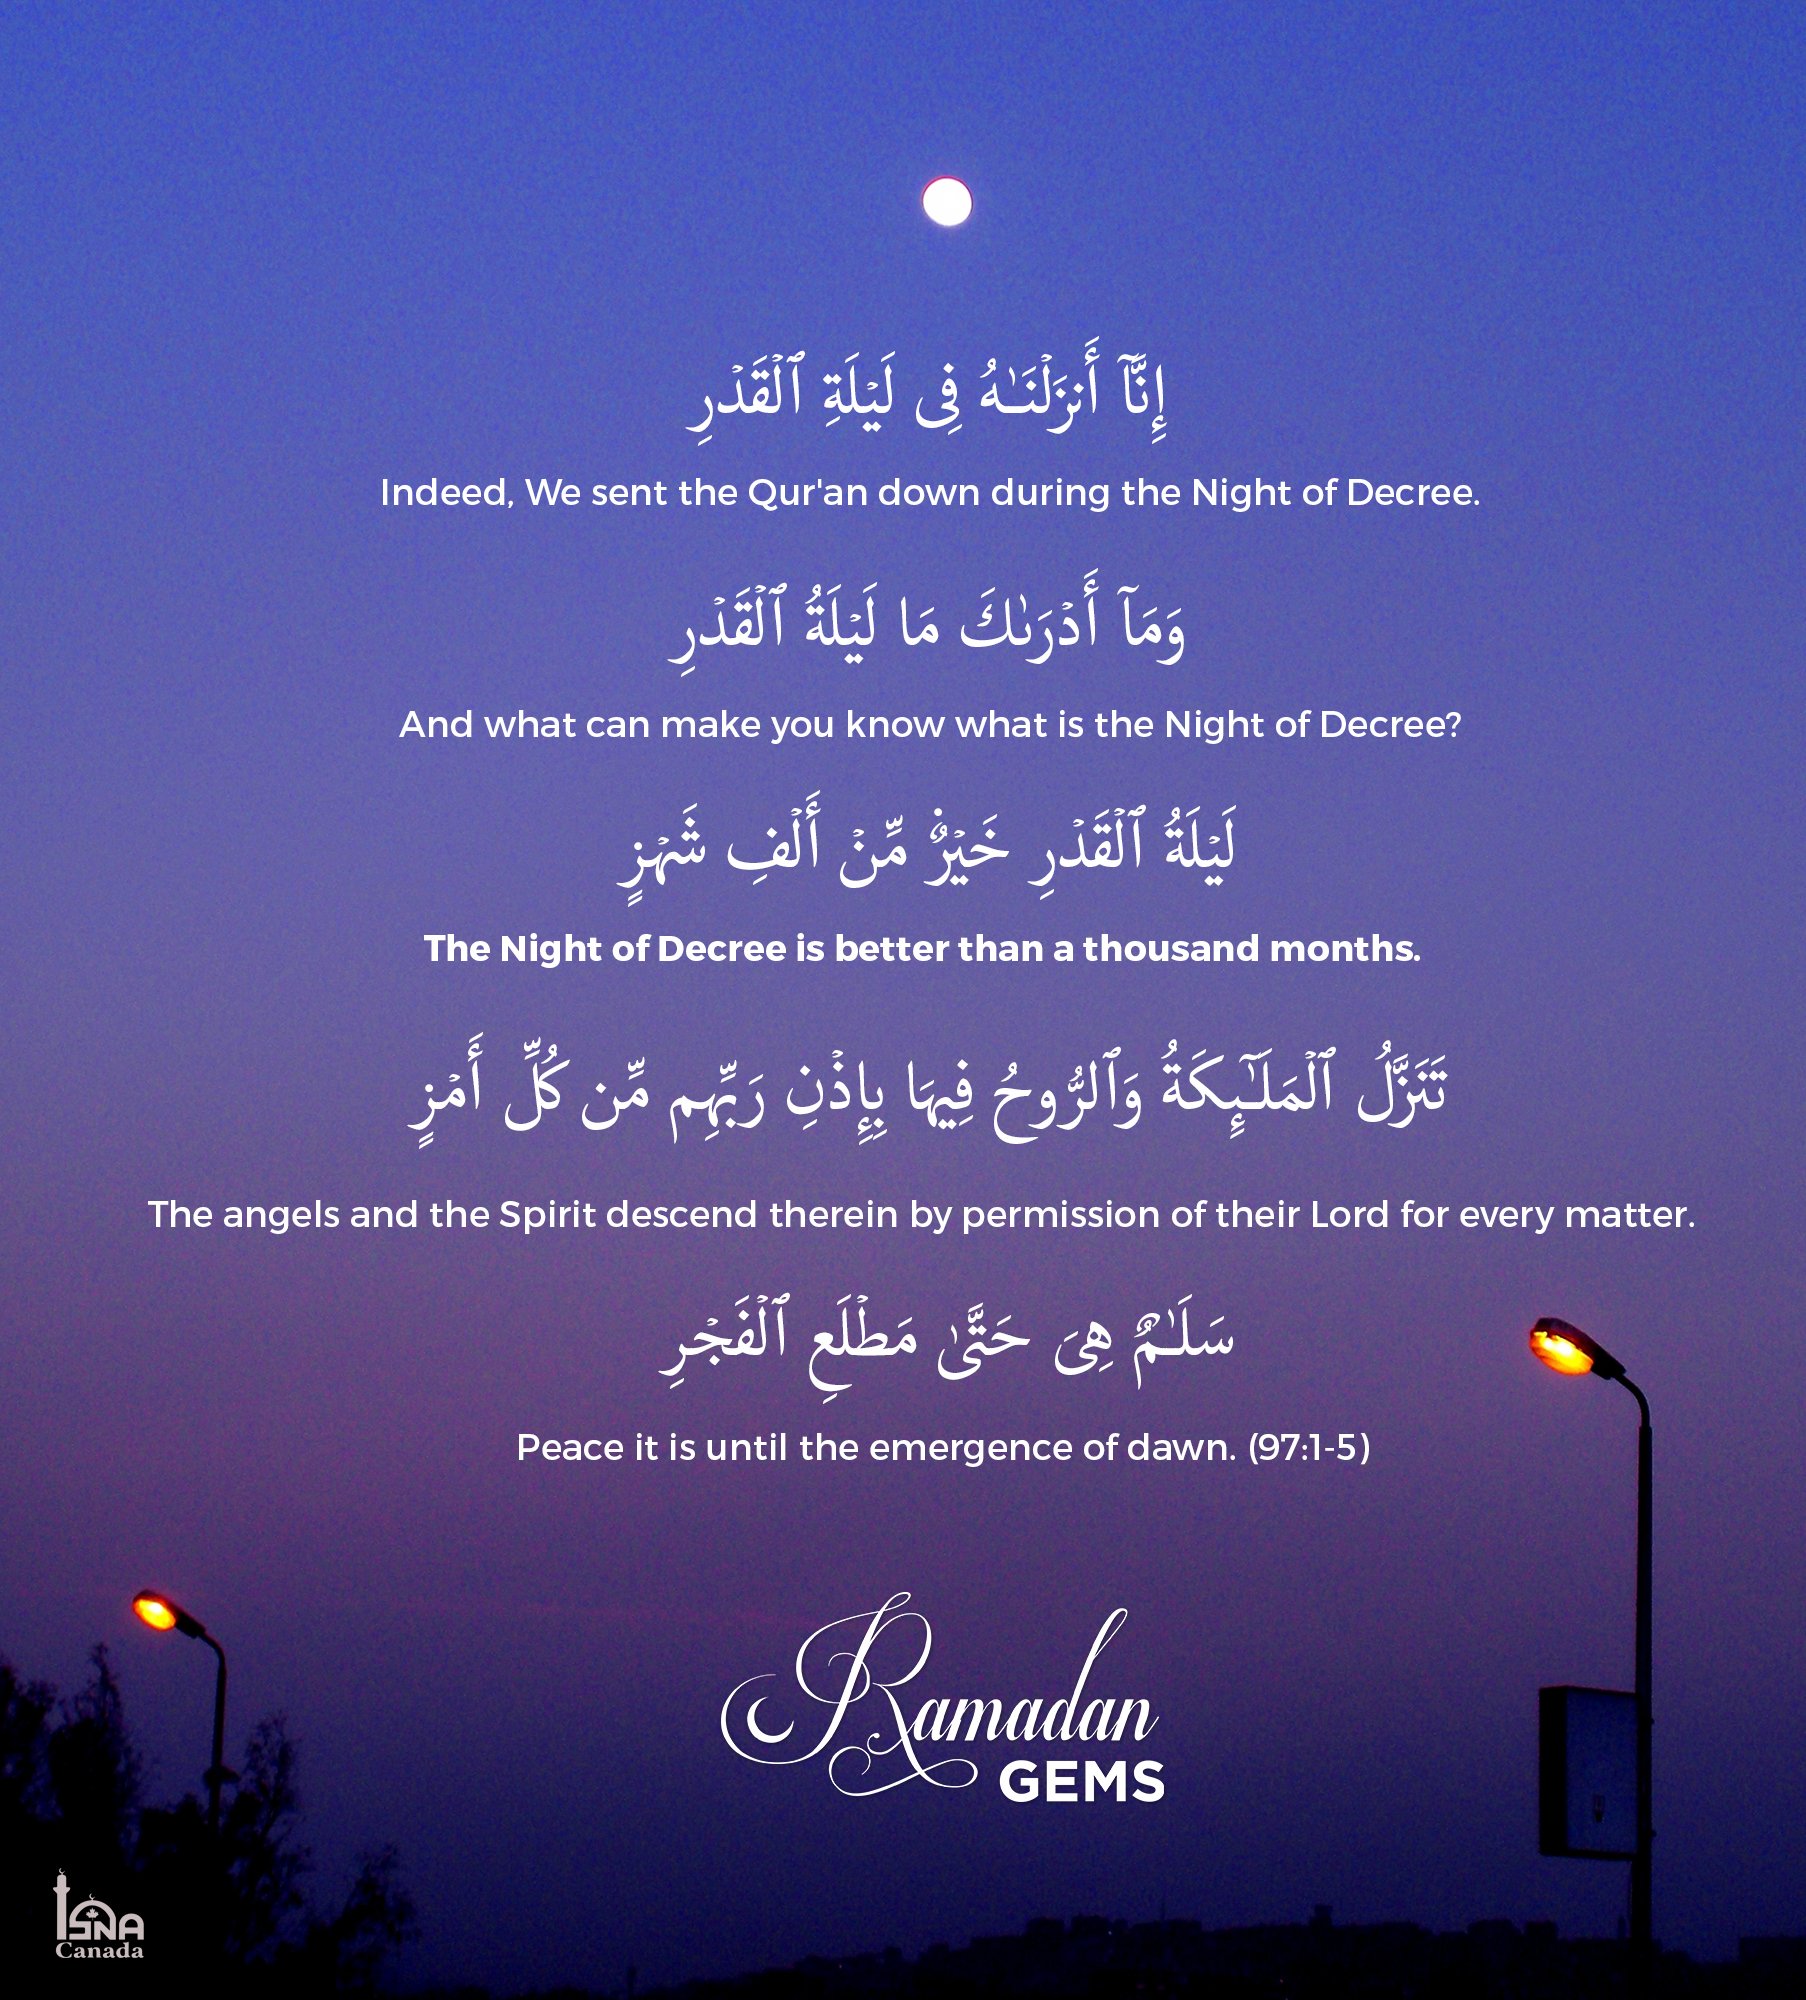 إِنَّآ أَنزَلْنَـٰهُ فِى لَيْلَةِ ٱلْقَدْرِ
Indeed, We sent the Qur'an down during the Night of Decree.
وَمَآ أَدْرَىٰكَ مَا لَيْلَةُ ٱلْقَدْرِ
And what can make you know what is the Night of Decree?
لَيْلَةُ ٱلْقَدْرِ خَيْرٌ مِّنْ أَلْفِ شَهْزٍ
The Night of Decree is better than a thousand months.
تَنَزَّلُ ٱلْمَلَـٰٓئِكَةُ وَٱلرُّوحُ فِيهَا بِإِذْنِ رَبِّهِم مِّن كُلِّ أَمْزٍ
The angels and the Spirit descend therein by permission of their Lord for every matter.
سَلَـٰمٌ هِىَ حَتَّىٰ مَطْلَعِ ٱلْفَجْرِ
Peace it is until the emergence of dawn. (97:1-5)
Ramadan
GEMS
ISNA
Canada